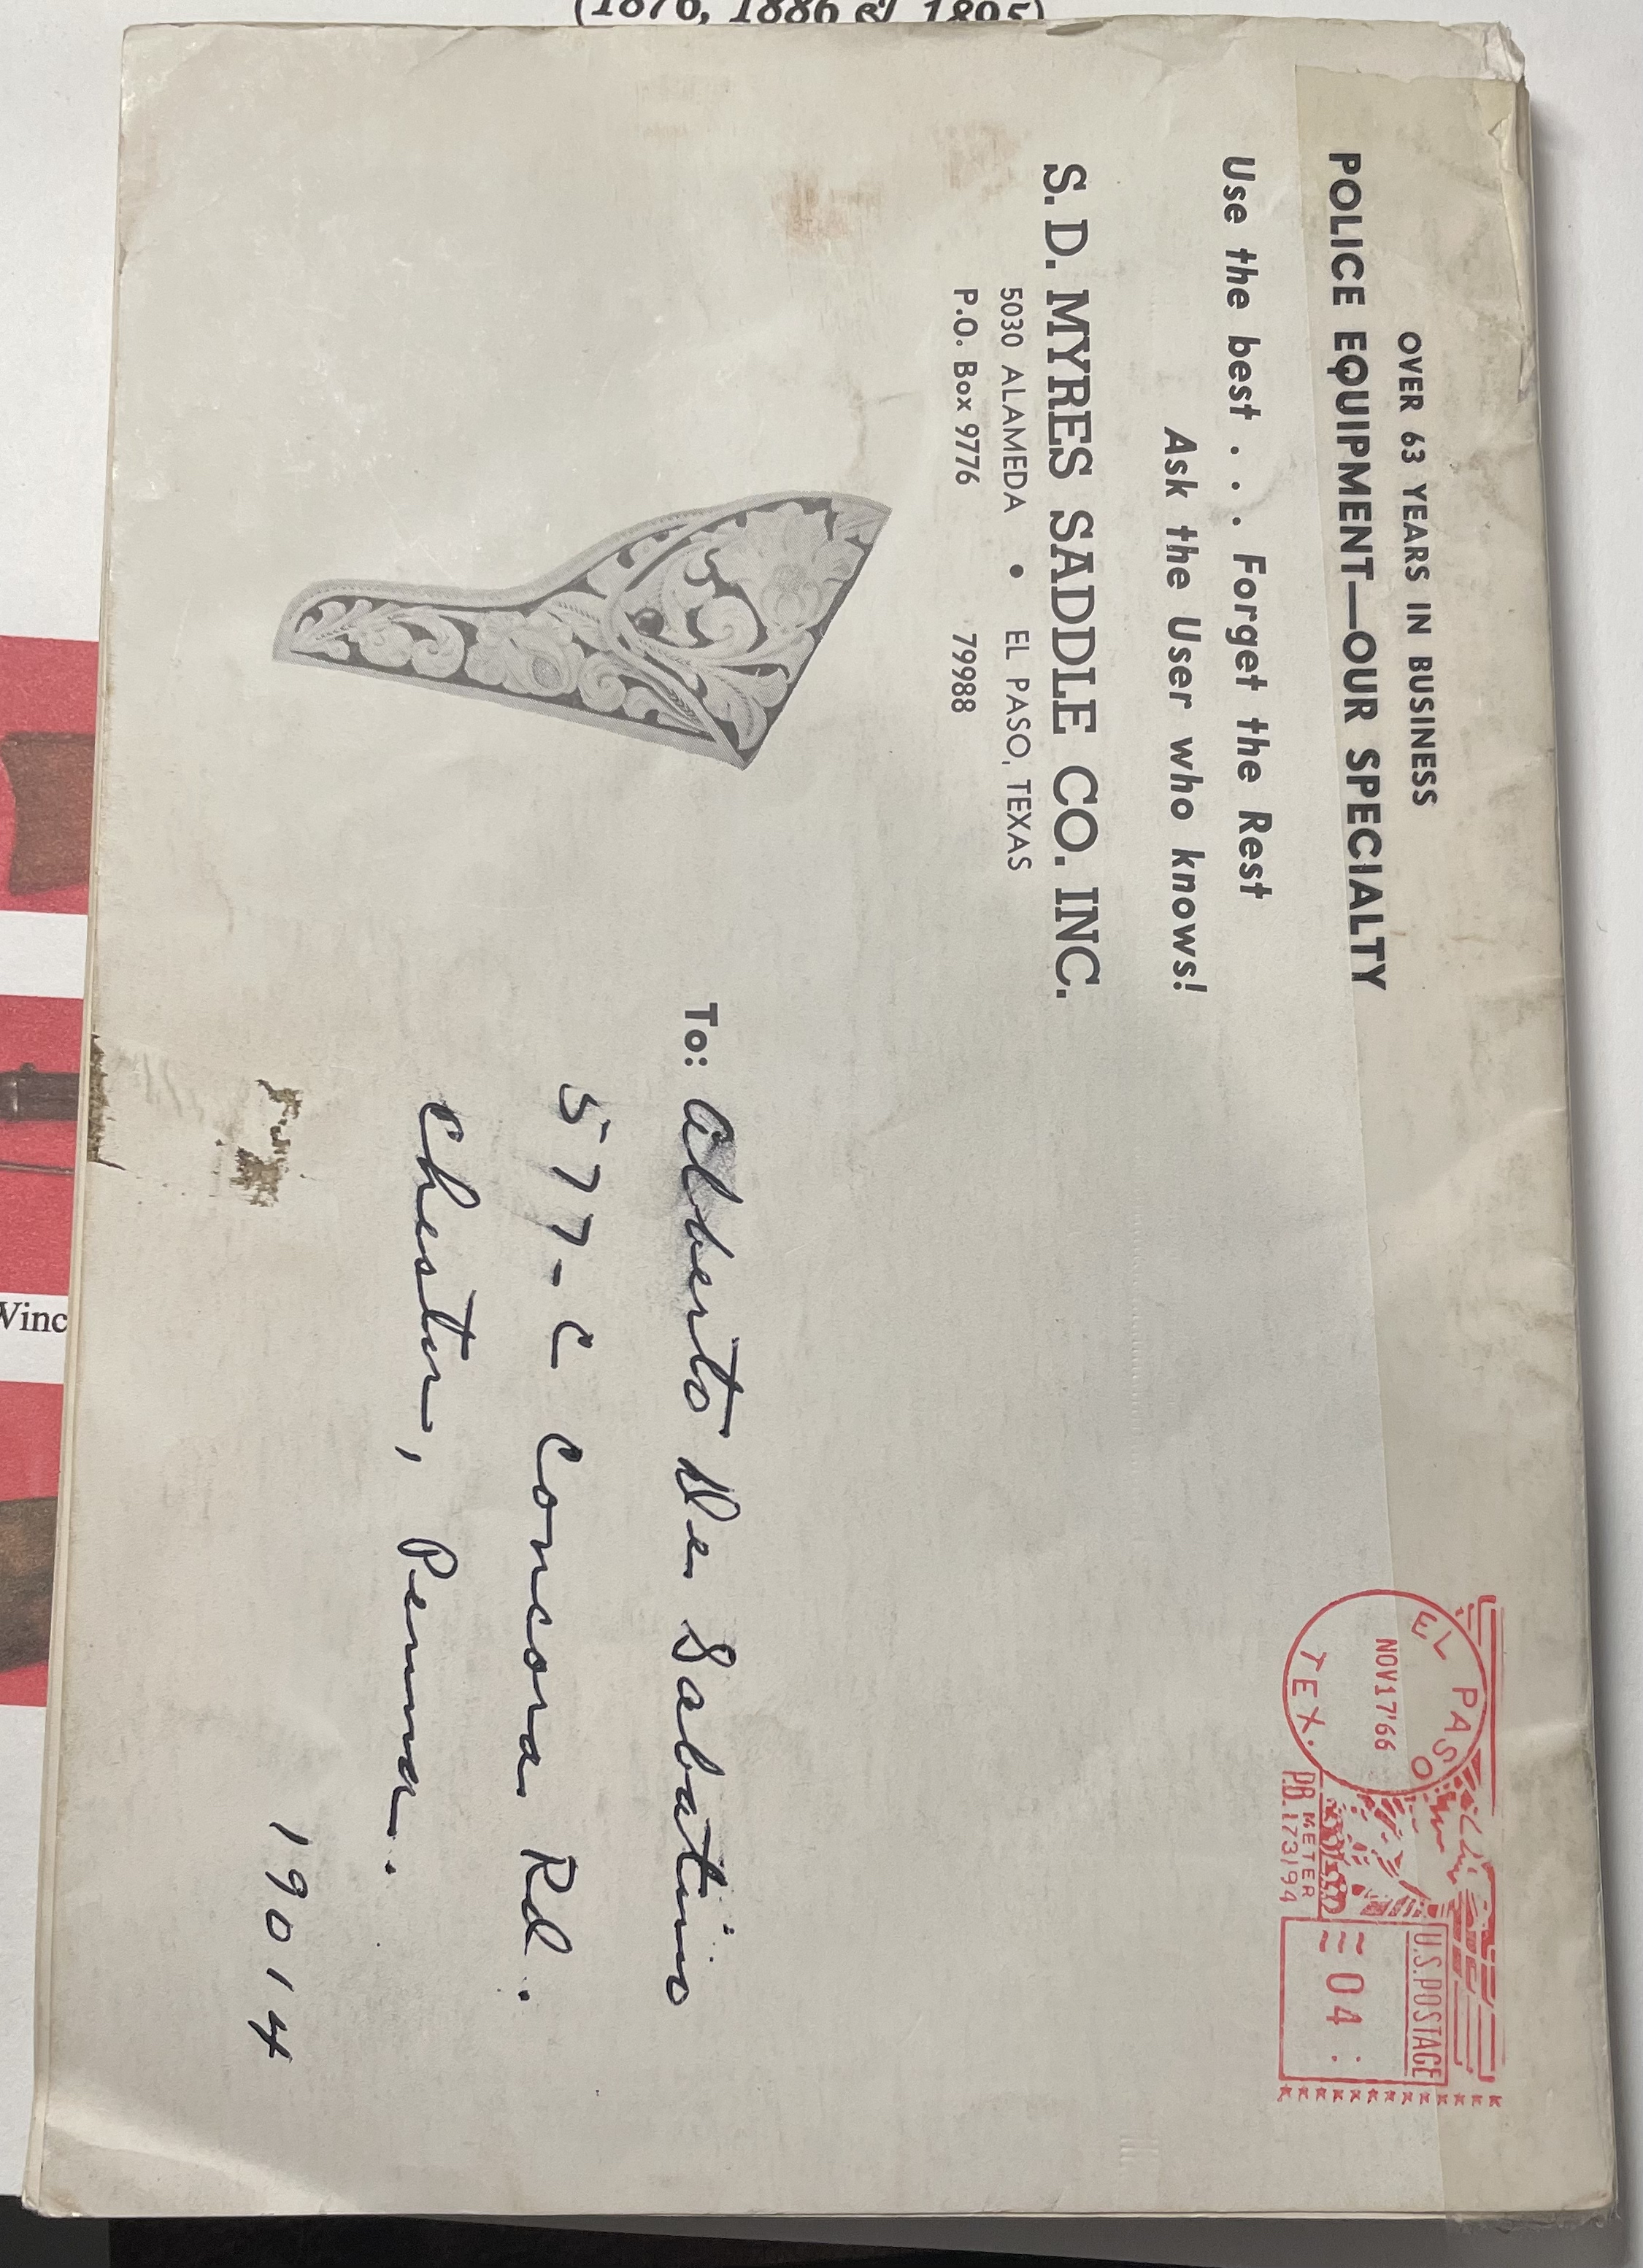 (1876, 1886 & 1895)
OVER 63 YEARS IN BUSINESS
POLICE EQUIPMENT—OUR SPECIALTY
Use the best . . . Forget the Rest
Ask the User who knows!
S. D. MYRES SADDLE CO. INC.
5030 ALAMEDA • EL PASO, TEXAS
P.O. Box 9776 79988
EL PASO
NOV17'66
TEX.
PB METER
U.S.POSTAGE
04
To: Alberto De Sabatino
577-C Concord Rd.
Chester, Penna.
19014
Winc